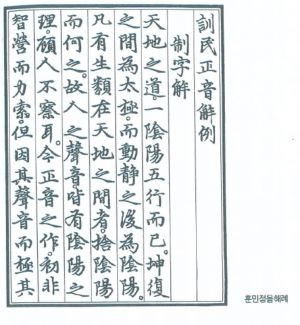 訓民正音解例
制字解
天地之道。一陰陽五行而已。坤復
之間為太極。而動静之後為陰陽。
凡有生類在天地之間者。捨陰陽
而何之。故人之聲音。皆有陰陽之
理。顧人不察耳。今正音之作。初非
智營而力索。但因其聲音而極其
훈민정음해례